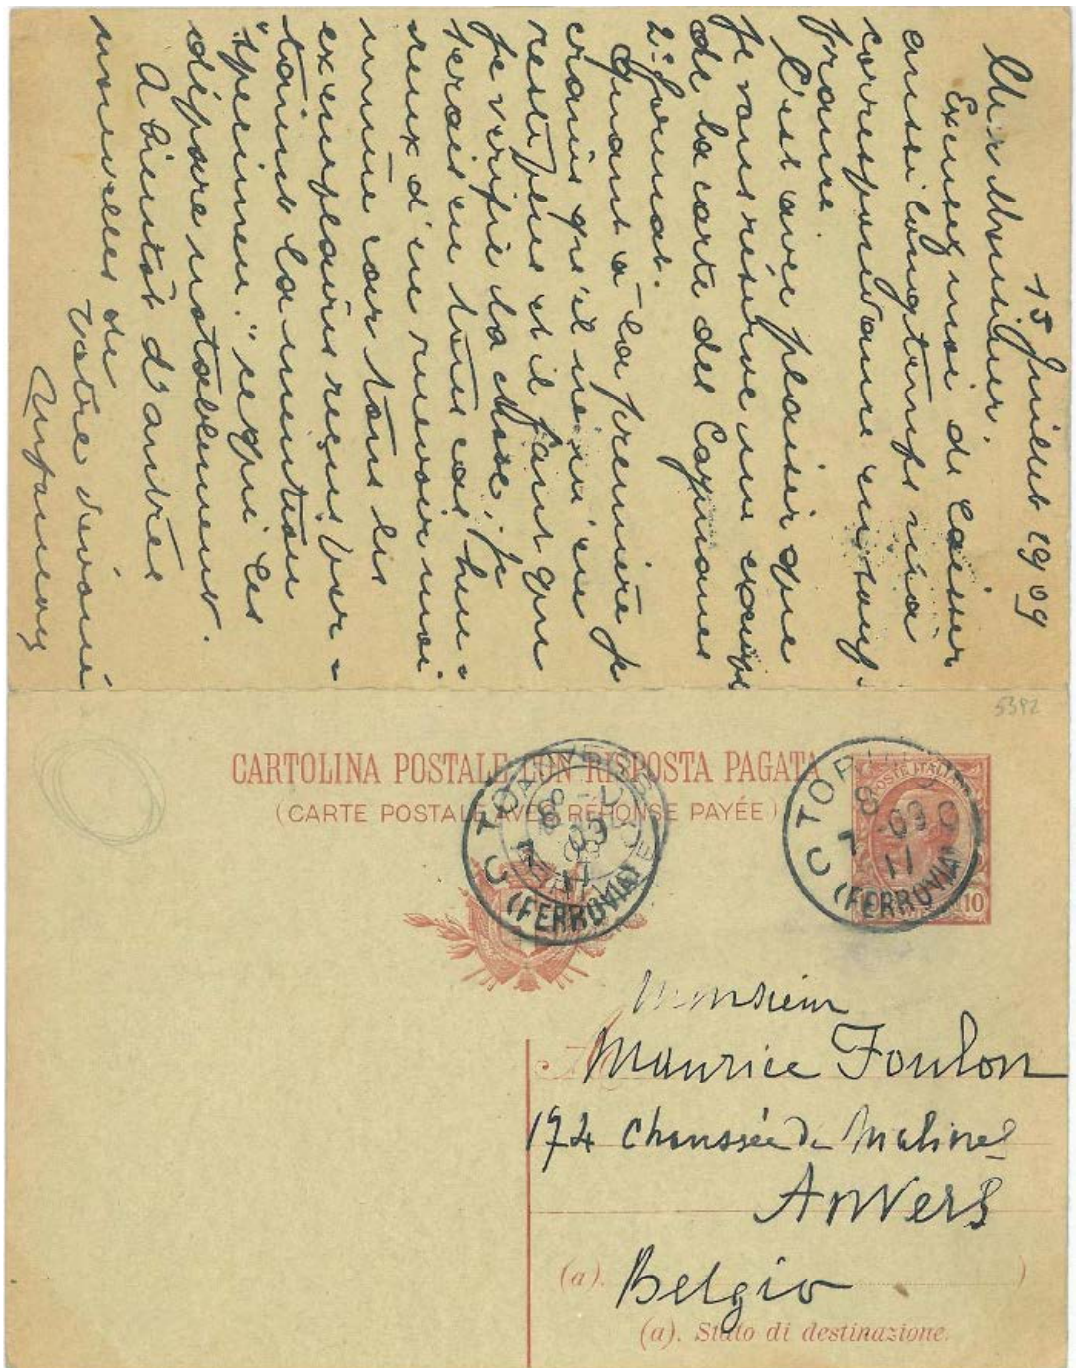 15 Juillet 1909
Cher Monsieur.
Excusez moi de laisser
aussi longtemps ma
correspondance en souf-
france.
C'est avec plaisir que
je vous réserve un exemp
de la carte des Caymanes
2e format.
Quant à la première je
crains qu'il n'en
reste plus et il faut que
je verifie la chose; je
serais en tous cas heu=
reux d'en recevoir moi
même car tous les
exemplaires reçus por=
taient la mention
"specimen" ce qui les
dépare notablement.
A bientôt d'autres
nouvelles de
votre dévoué
5392
CARTOLINA POSTALE CON RISPOSTA PAGATA
(CARTE POSTALE AVEC RÉPONSE PAYÉE)
POSTE ITALIANE
10
TORINO
8
7 - 09
11
(FERROVIA)
TORINO
8
7 - 09
11
(FERROVIA)
Monsieur
A Maurice Foulon
174 Chaussée de Malines
Anvers
(a). Belgio )
(a). Stato di destinazione.